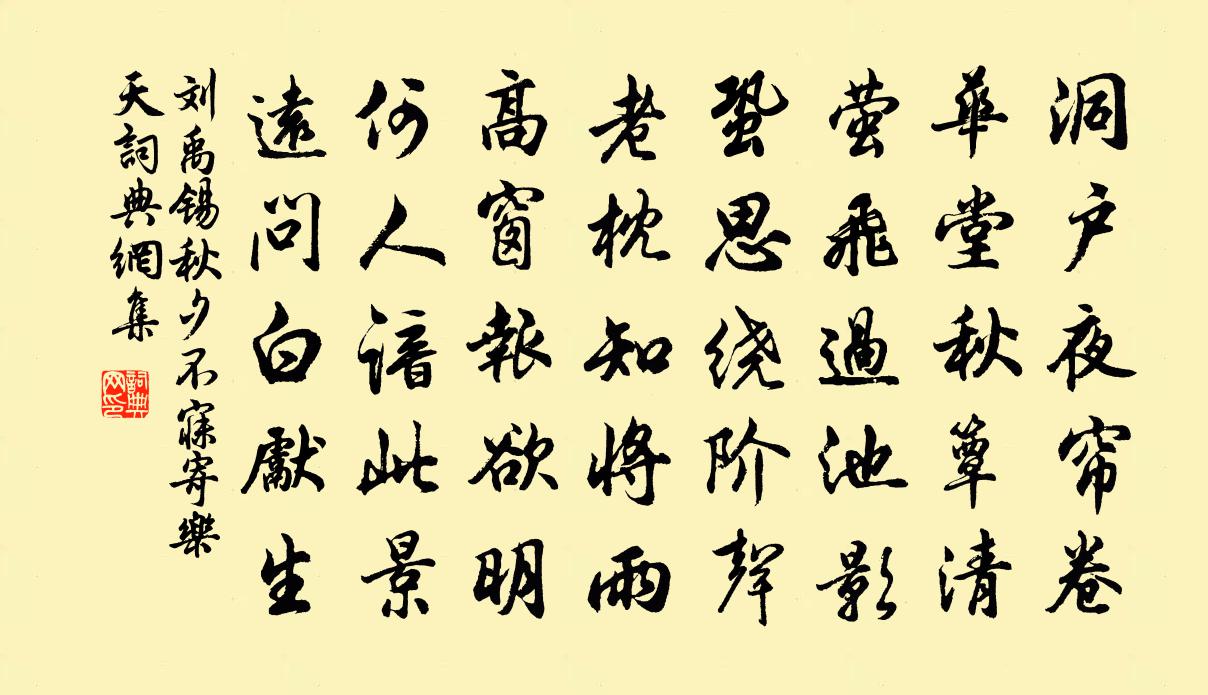 洞户夜帘卷
華堂秋簟清
萤飛過池影
蛩思绕阶聲
老枕知将雨
高窗報欲明
何人谙此景
遠問白獻生
刘禹锡秋夕不寐寄樂
天詞典網集
詞典网印